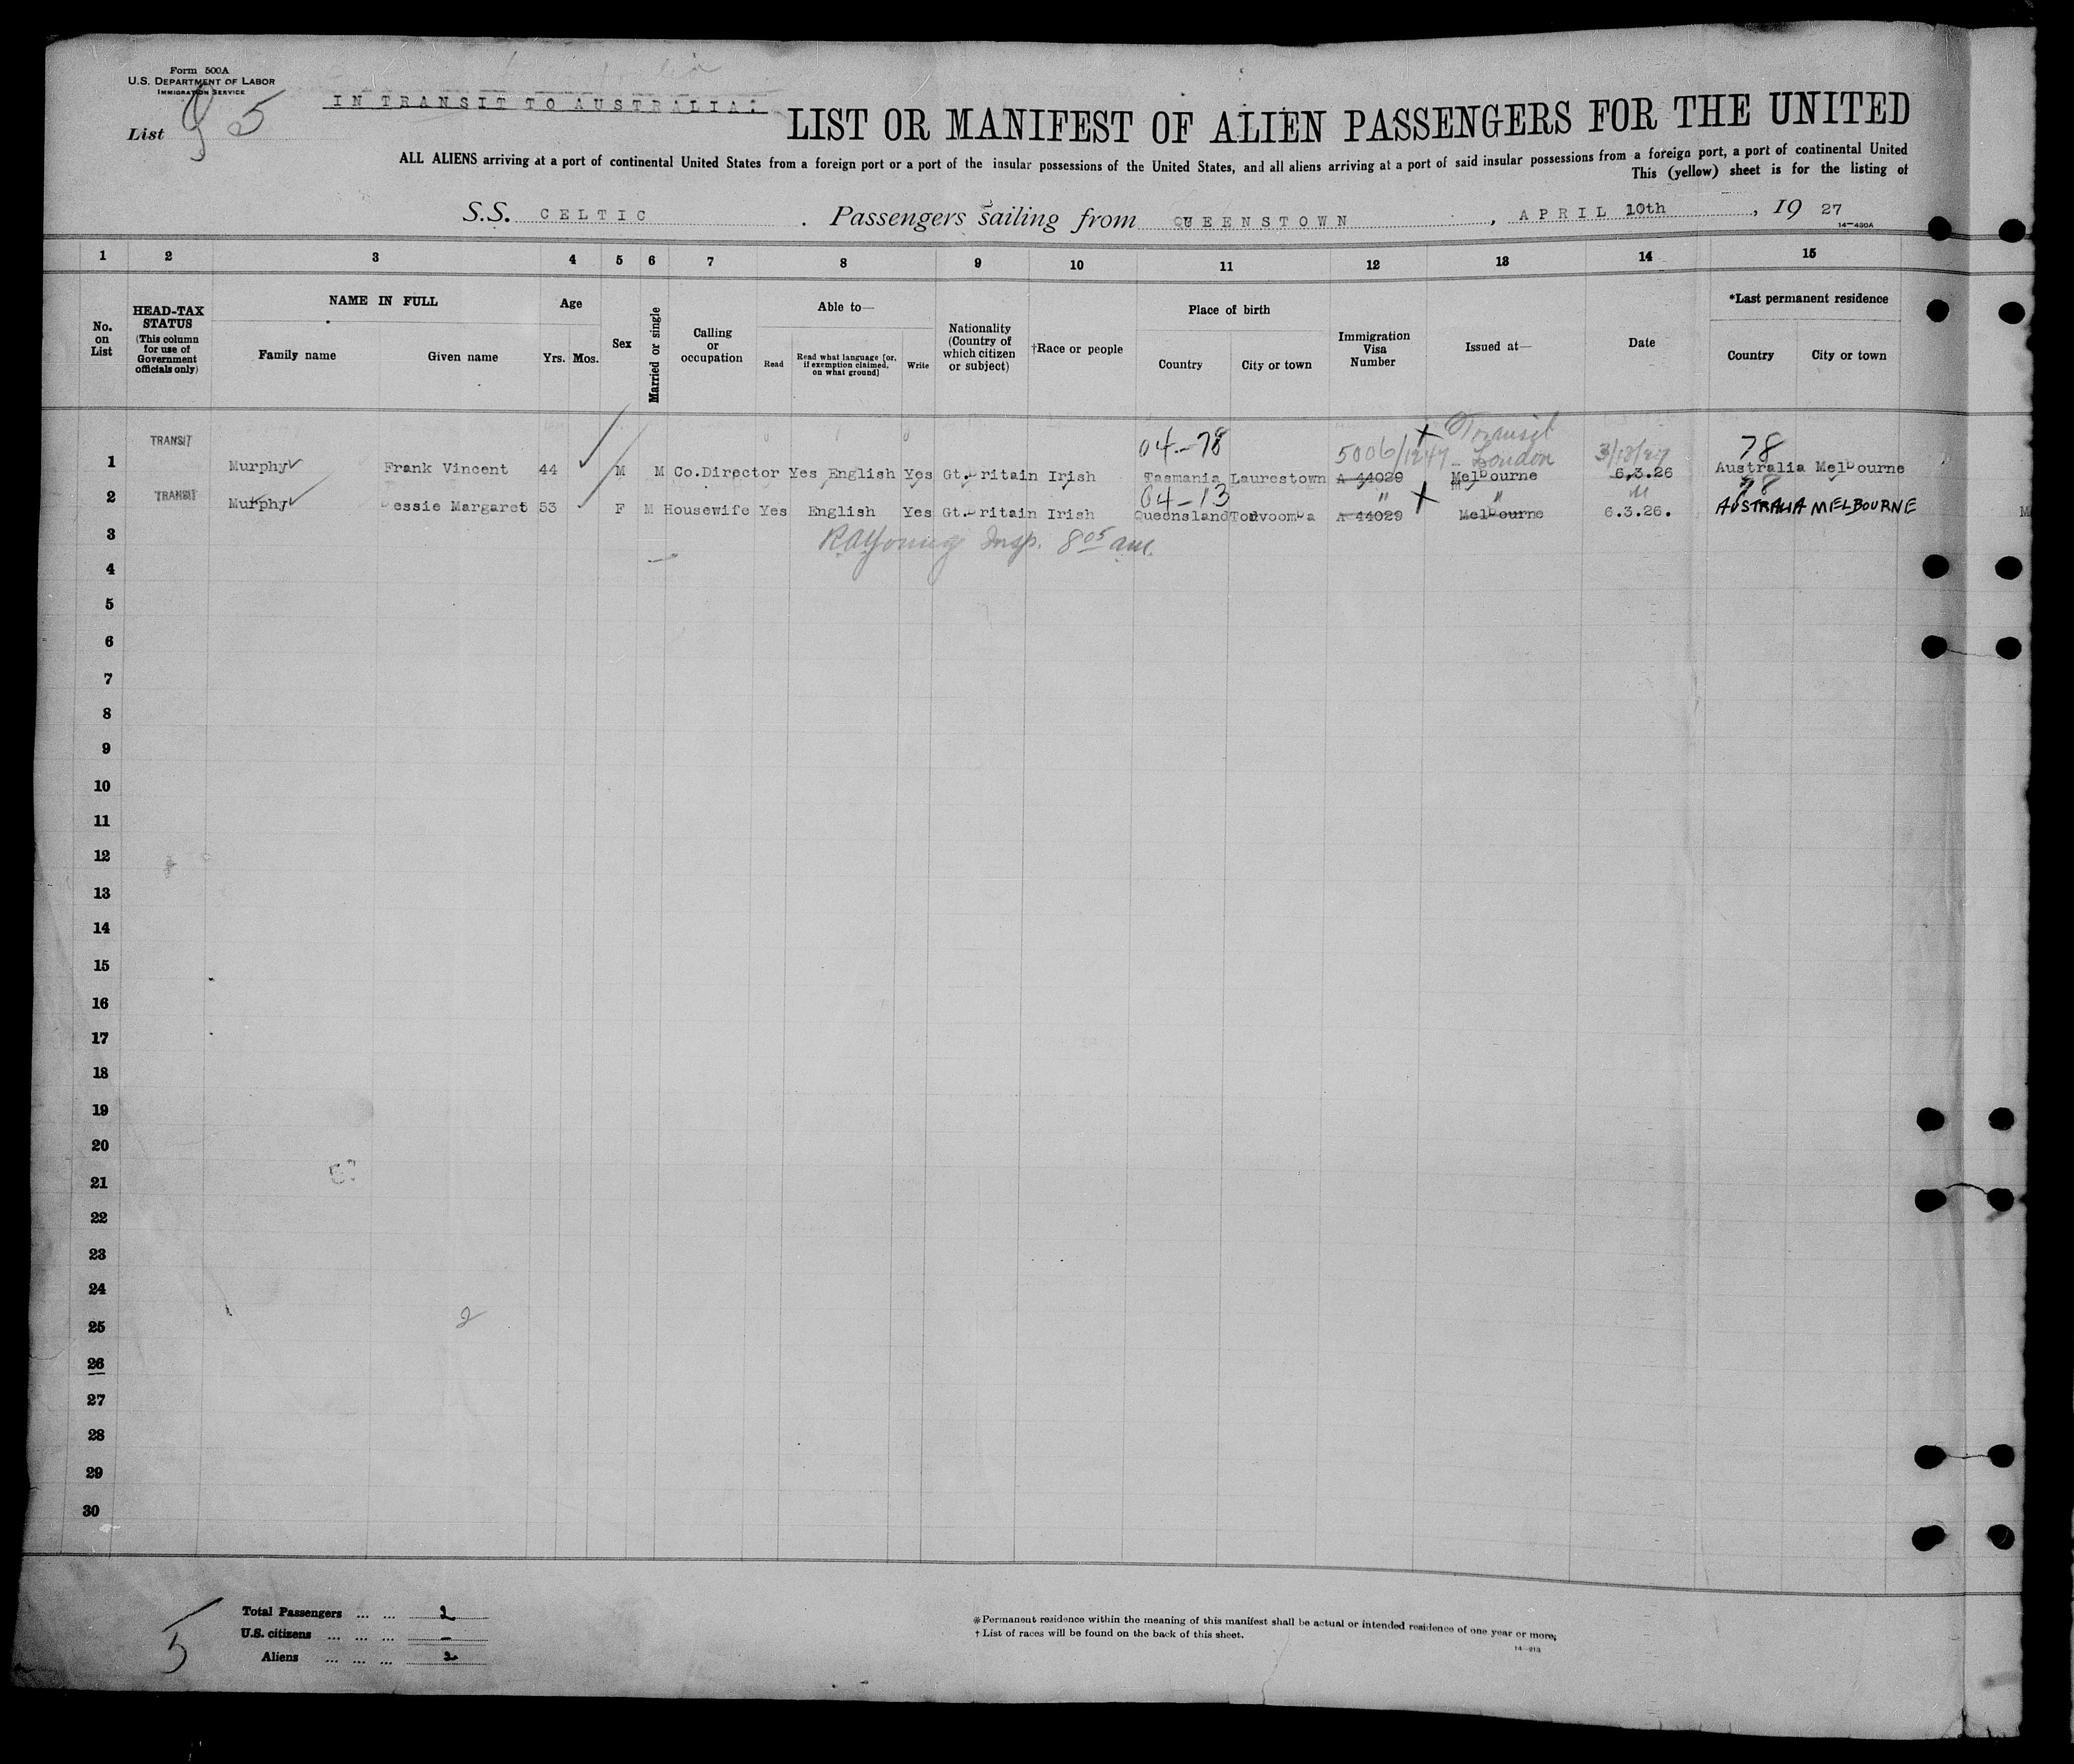 Form 500A
U.S. DEPARTMENT OF LABOR
IMMIGRATION SERVICE
List 5
IN TRANSIT TO AUSTRALIA.
LIST OR MANIFEST OF ALIEN PASSENGERS FOR THE UNITED
ALL ALIENS arriving at a port of continental United States from a foreign port or a port of the insular possessions of the United States, and all aliens arriving at a port of said insular possessions from a foreign port, a port of continental United
This (yellow) sheet is for the listing of
S.S. CELTIC . Passengers sailing from QUEENSTOWN, APRIL 10th, 1927
14—430A
1 2 3 4 5 6 7 8 9 10 11 12 13 14 15
No. on List
HEAD-TAX STATUS
(This column for use of Government officials only)
NAME IN FULL
Family name Given name
Age
Yrs. Mos.
Sex
Married or single
Calling or occupation
Able to—
Read
Read what language [or, if exemption claimed, on what ground]
Write
Nationality (Country of which citizen or subject)
†Race or people
Place of birth
Country City or town
Immigration Visa Number
Issued at—
Date
*Last permanent residence
Country City or town
04-78 5006/1247 Transit London 3/18/27 78
1 TRANSIT Murphy Frank Vincent 44 M M Co.Director Yes English Yes Gt.Britain Irish Tasmania Laurestown A 44029 Melbourne 6.3.26 Australia Melbourne
04-13 " " " 78
2 TRANSIT Murphy Bessie Margaret 53 F M Housewife Yes English Yes Gt.Britain Irish Queensland Toowoomba A 44029 Melbourne 6.3.26. AUSTRALIA MELBOURNE
3 RAYoung Insp. 8 05 am.
4
5
6
7
8
9
10
11
12
13
14
15
16
17
18
19
20
21
22
23
24
2
25
26
27
28
29
30
5
Total Passengers ... ... 2
U.S. citizens ... ... ... —
Aliens ... ... ... 2
*Permanent residence within the meaning of this manifest shall be actual or intended residence of one year or more.
†List of races will be found on the back of this sheet.
14—213